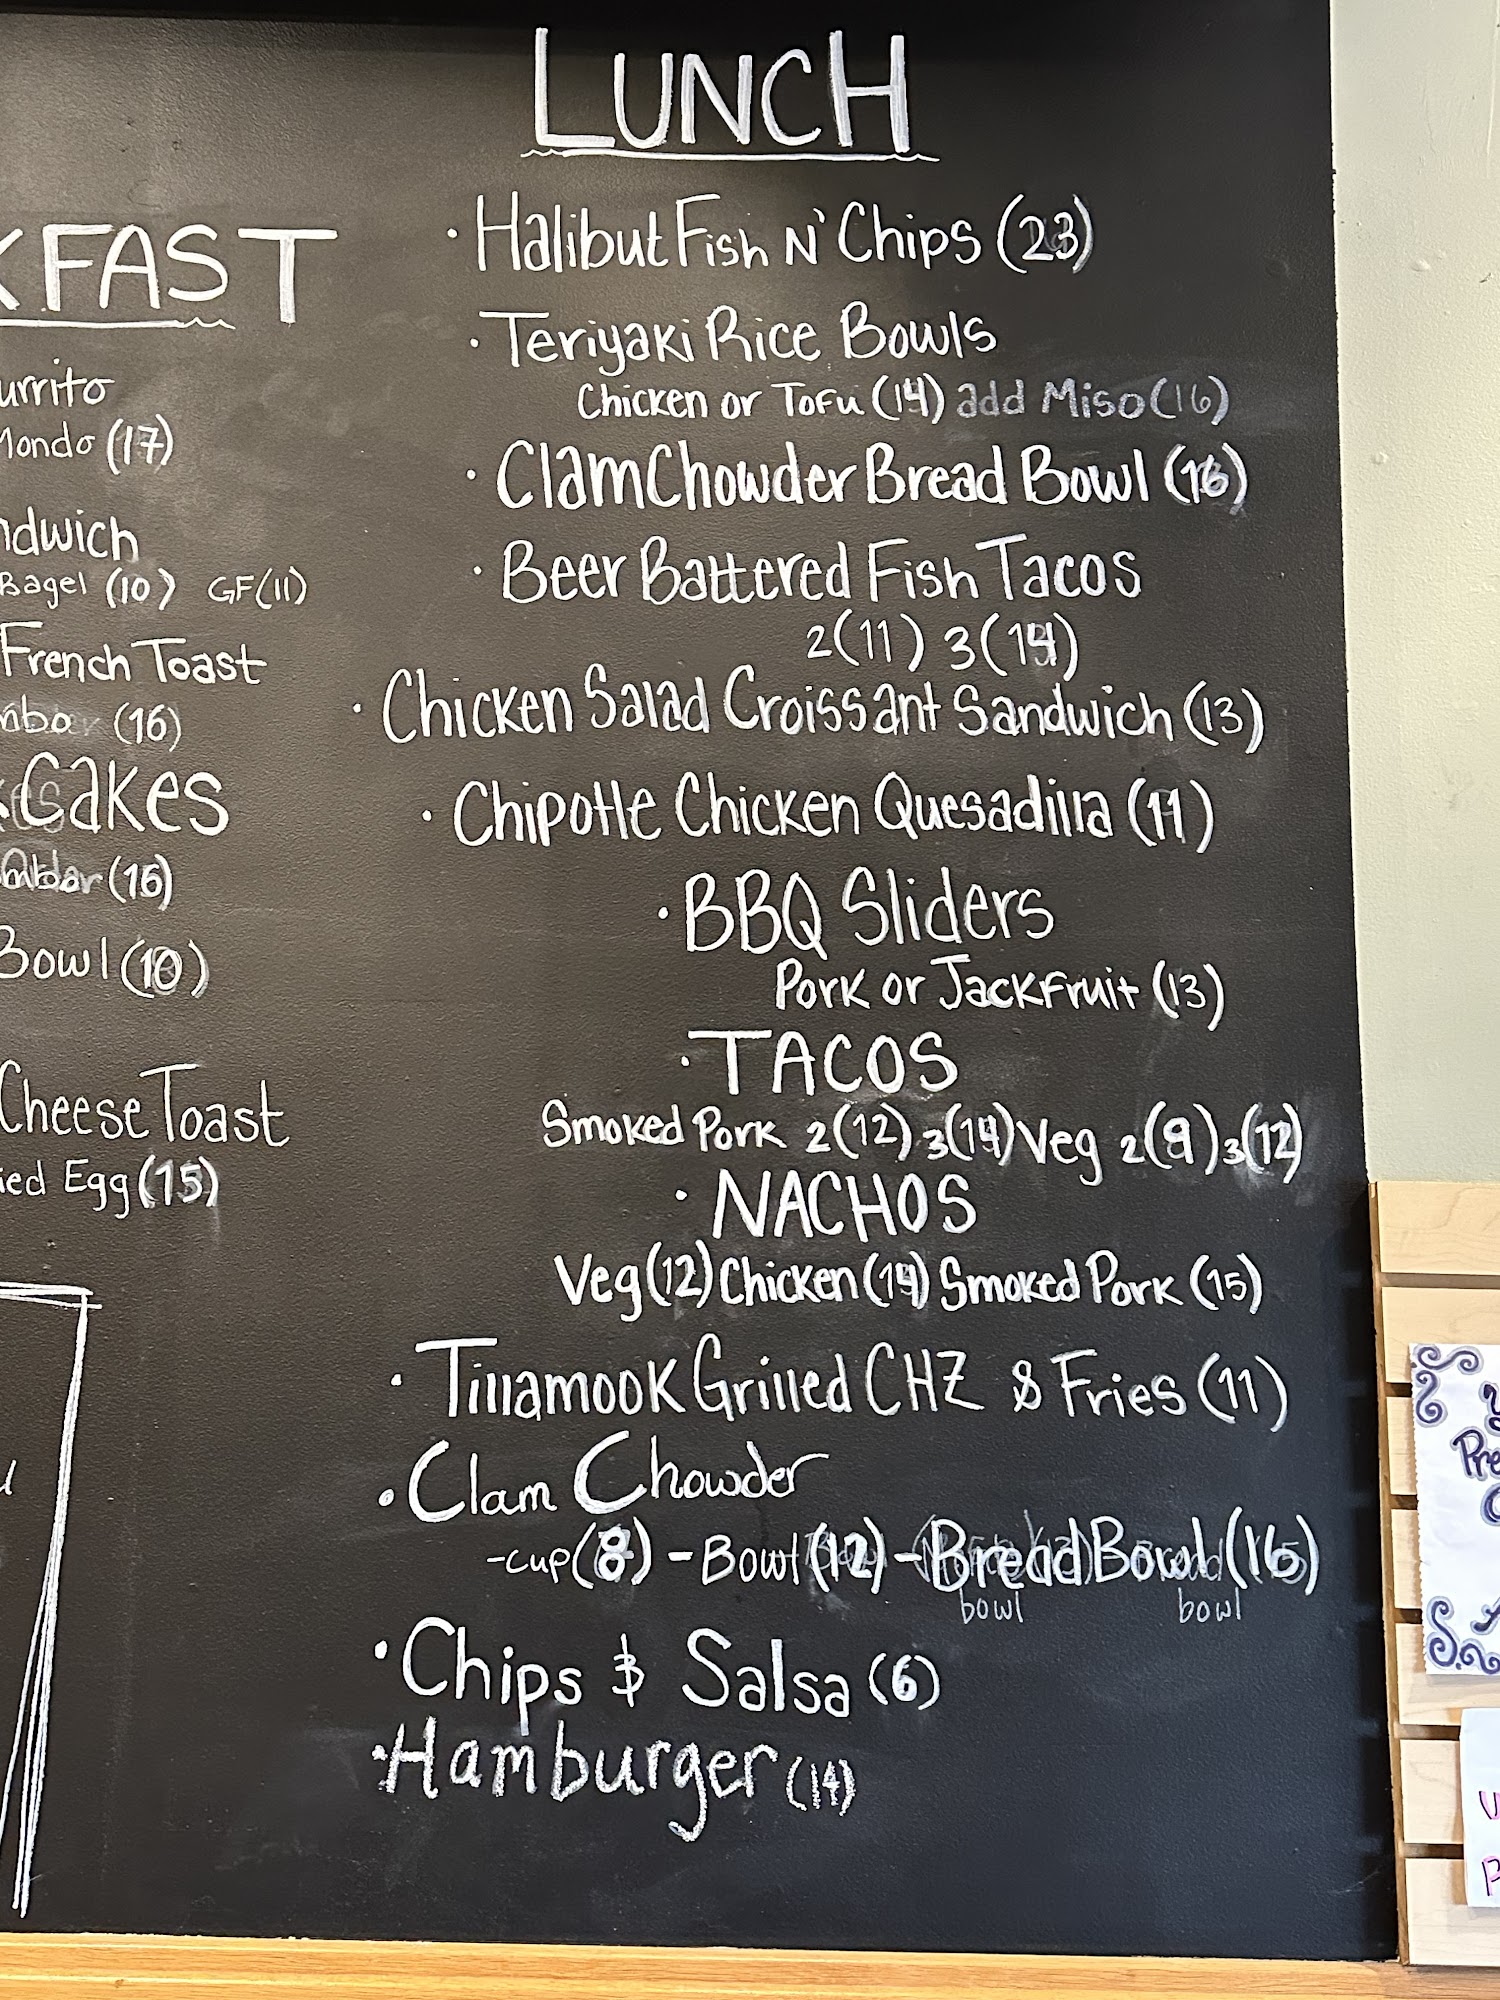 LUNCH
· Halibut Fish N' Chips (23)
· Teriyaki Rice Bowls
Chicken or Tofu (14) add Miso (16)
· Clam Chowder Bread Bowl (16)
· Beer Battered Fish Tacos
2 (11) 3 (14)
· Chicken Salad Croissant Sandwich (13)
· Chipotle Chicken Quesadilla (11)
· BBQ Sliders
Pork or Jackfruit (13)
· TACOS
Smoked Pork 2 (12) 3 (14) Veg 2 (9) 3 (12)
· NACHOS
Veg (12) Chicken (14) Smoked Pork (15)
· Tillamook Grilled CHZ & Fries (11)
· Clam Chowder
- Cup (8) - Bowl (12) - Bread Bowl (16)
bowl bowl
· Chips & Salsa (6)
· Hamburger (14)
KFAST
urrito
Mondo (17)
ndwich
Bagel (10) GF (11)
French Toast
(16)
Cakes
(16)
Bowl (10)
Cheese Toast
ied Egg (15)